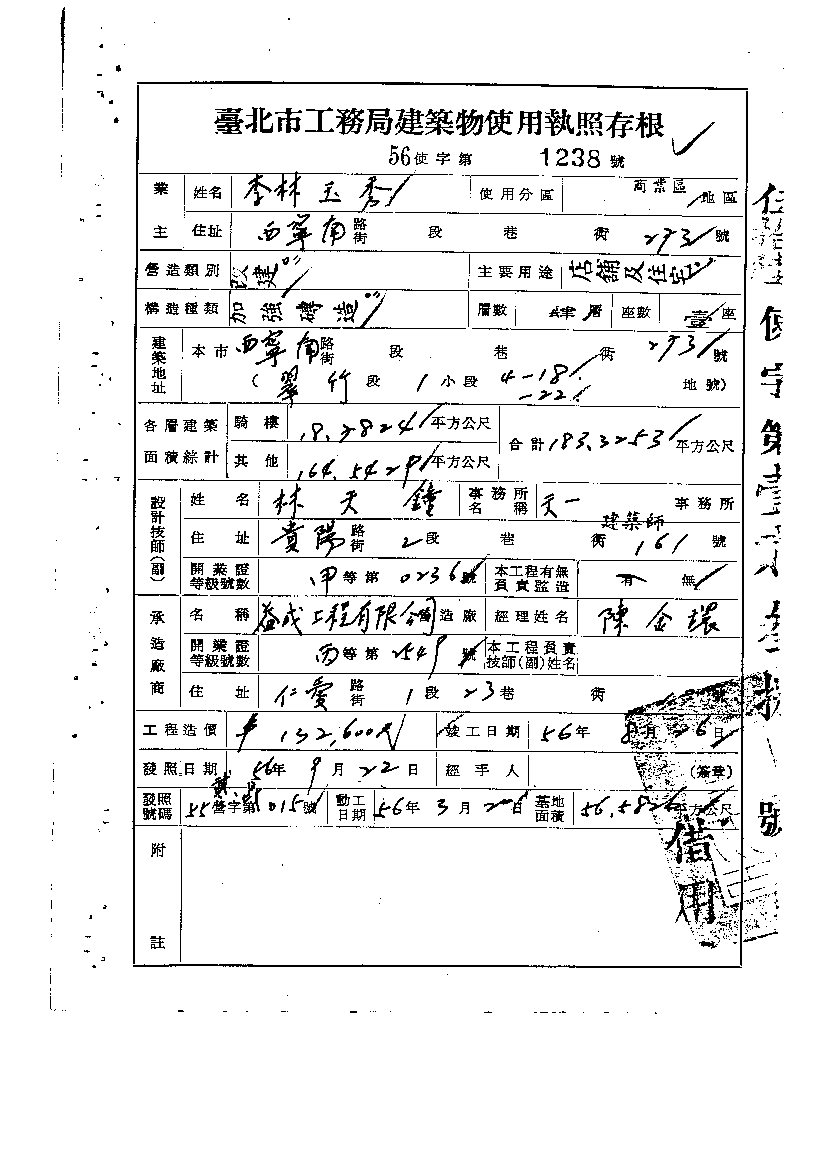 臺北市工務局建築物使用執照存根
56使字第 1238 號
業主 姓名 李林玉秀 使用分區 商業區 地區
住址 西寧南 路街 段 巷 街 293 號
營造類別 改建 主要用途 店舖及住宅
構造種類 加強磚造 層數 肆層 座數 壹座
建築地址 本市 西寧南 路街 段 巷 街 293 號
( 翠竹段 1 小段 4-18 地號)
-22
各層建築面積綜計 騎樓 18.7824 平方公尺 合計 183.3253 平方公尺
其他 164.5429 平方公尺
設計技師(副) 姓名 林天鐘 事務所名稱 天一 建築師 事務所
住址 貴陽 路街 2段 巷 街 161 號
開業證等級號數 甲等第 0236 號 本工程有無負責監造 有 無
承造廠商 名稱 益成工程有限公司 造廠 經理姓名 陳金環
開業證等級號數 丙等第 2549 號 本工程負責技師(副)姓名
住址 仁愛 路街 1段 23巷 街 號
工程造價 132,600 竣工日期 56年 8月 26日
發照日期 56年 9月 22日 經手人 (簽章)
發照號碼 55營字第 015號 動工日期 56年 3月 20日 基地面積 56.582 平方公尺
附註
借用